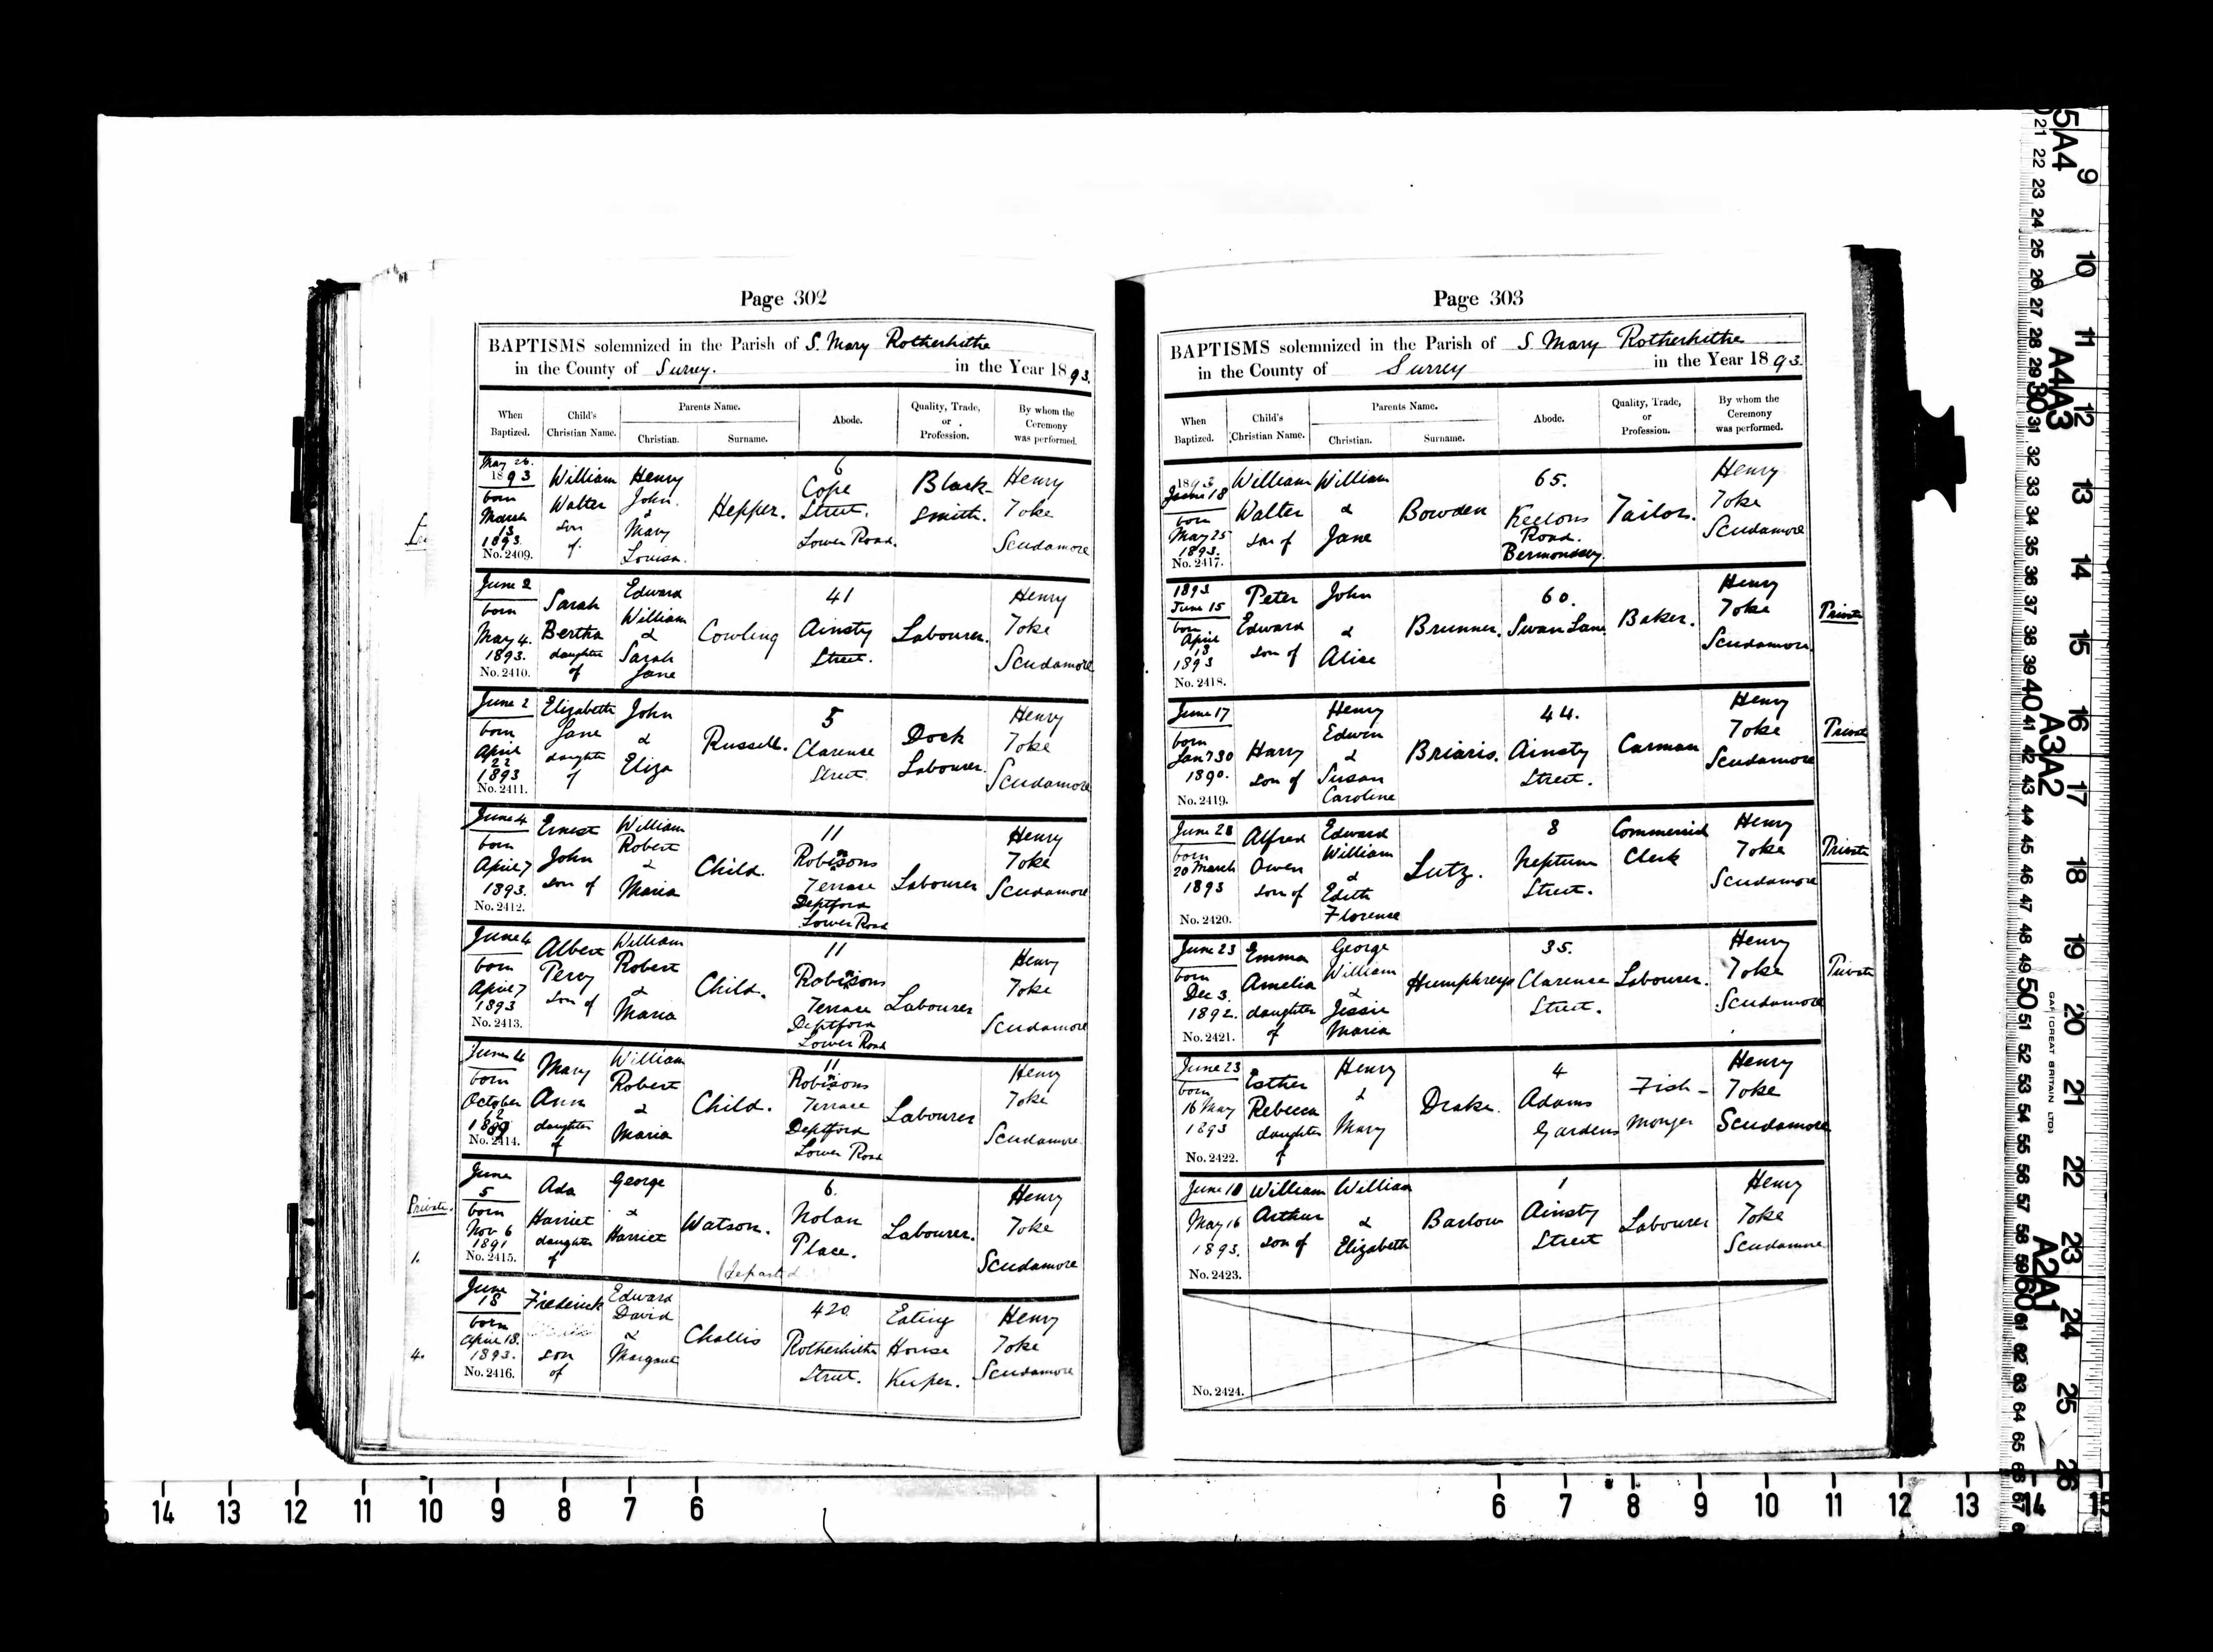 Page 302
BAPTISMS solemnized in the Parish of S. Mary Rotherhithe
in the County of Surrey. in the Year 1893.
When Baptized. Child's Christian Name. Parents Name. Christian. Surname. Abode. Quality, Trade, or Profession. By whom the Ceremony was performed.
May 26. 1893 born March 13 1893. No. 2409. William Walter son of Henry John & Mary Louisa Hepper. 6 Cope Street. Lower Road. Black-smith. Henry Toke Scudamore
June 2 born May 4. 1893. No. 2410. Sarah Bertha daughter of Edward William & Sarah Jane Cowling 41 Ainsty Street. Labourer. Henry Toke Scudamore
June 2 born April 22 1893 No. 2411. Elizabeth Jane daughter of John & Eliza Russell. 5 Clarence Street Dock Labourer. Henry Toke Scudamore
June 4 born April 7 1893. No. 2412. Ernest John son of William Robert & Maria Child. 11 Robinsons Terrace Deptford Lower Road Labourer Henry Toke Scudamore
June 4 born April 7 1893 No. 2413. Albert Percy son of William Robert & Maria Child. 11 Robinsons Terrace Deptford Lower Road Labourer Henry Toke Scudamore
June 4 born October 12 No. 2414. Mary Ann daughter of William Robert & Maria Child. 11 Robinsons Terrace Deptford Lower Road Labourer Henry Toke Scudamore
Private.
June 5 born Nov 6 1891 No. 2415. Ada Harriet daughter of George & Harriet Watson. 6. Nolan Place. Labourer. Henry Toke Scudamore
1.
June 18 born April 18. 1893. No. 2416. Frederick son of Edward David & Margaret Challis 420 Rotherhithe Street. Eating House Keeper. Henry Toke Scudamore
4.
Page 303
BAPTISMS solemnized in the Parish of S. Mary Rotherhithe
in the County of Surrey in the Year 1893.
When Baptized. Child's Christian Name. Parents Name. Christian. Surname. Abode. Quality, Trade, or Profession. By whom the Ceremony was performed.
1893 June 18 born May 25 1893. No. 2417. William Walter son of William & Jane Bowden 65. Keetons Road. Bermondsey. Tailor. Henry Toke Scudamore
1893 June 15 born April 13 1893 No. 2418. Peter Edward son of John & Alice Brunner. 60. Swan Lane Baker. Henry Toke Scudamore Private
June 17 born Jany 30 1890. No. 2419. Harry son of Henry Edwin & Susan Caroline Briaris. 44. Ainsty Street. Carman Henry Toke Scudamore Private
June 28 born 20 March 1893 No. 2420. Alfred Owen son of Edward William & Edith Florence Lutz. 8 Neptune Street. Commercial Clerk Henry Toke Scudamore Private
June 23 born Dec 3. 1892. No. 2421. Emma Amelia daughter of George William & Jessie Maria Humphreys 35. Clarence Street. Labourer. Henry Toke Scudamore Private
June 23 born 16 May 1893 No. 2422. Esther Rebecca daughter of Henry & Mary Drake. 4 Adams Gardens Fish-monger Henry Toke Scudamore
June 18 May 16 1893. No. 2423. William Arthur son of William & Elizabeth Barlow 1 Ainsty Street Labourer Henry Toke Scudamore
No. 2424.
14 13 12 11 10 9 8 7 6
6 7 8 9 10 11 12 13 14 15
A4 A4A3 A3A2 A2A1
9 10 11 12 13 14 15 16 17 18 19 20 21 22 23 24 25 26
21 22 23 24 25 26 27 28 29 30 31 32 33 34 35 36 37 38 39 40 41 42 43 44 45 46 47 48 49 50 51 52 53 54 55 56 57 58 59 60 61 62 63 64 65 66 67
(GREAT BRITAIN LTD)